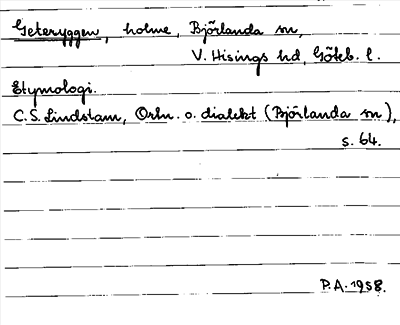 Geteryggen, holme, Björlanda sn,
V. Hisings hd, Göteb. l.
Etymologi.
C.S. Lindstam, Ortn. o. dialekt (Björlanda sn),
s. 64.
P.A. 1958.